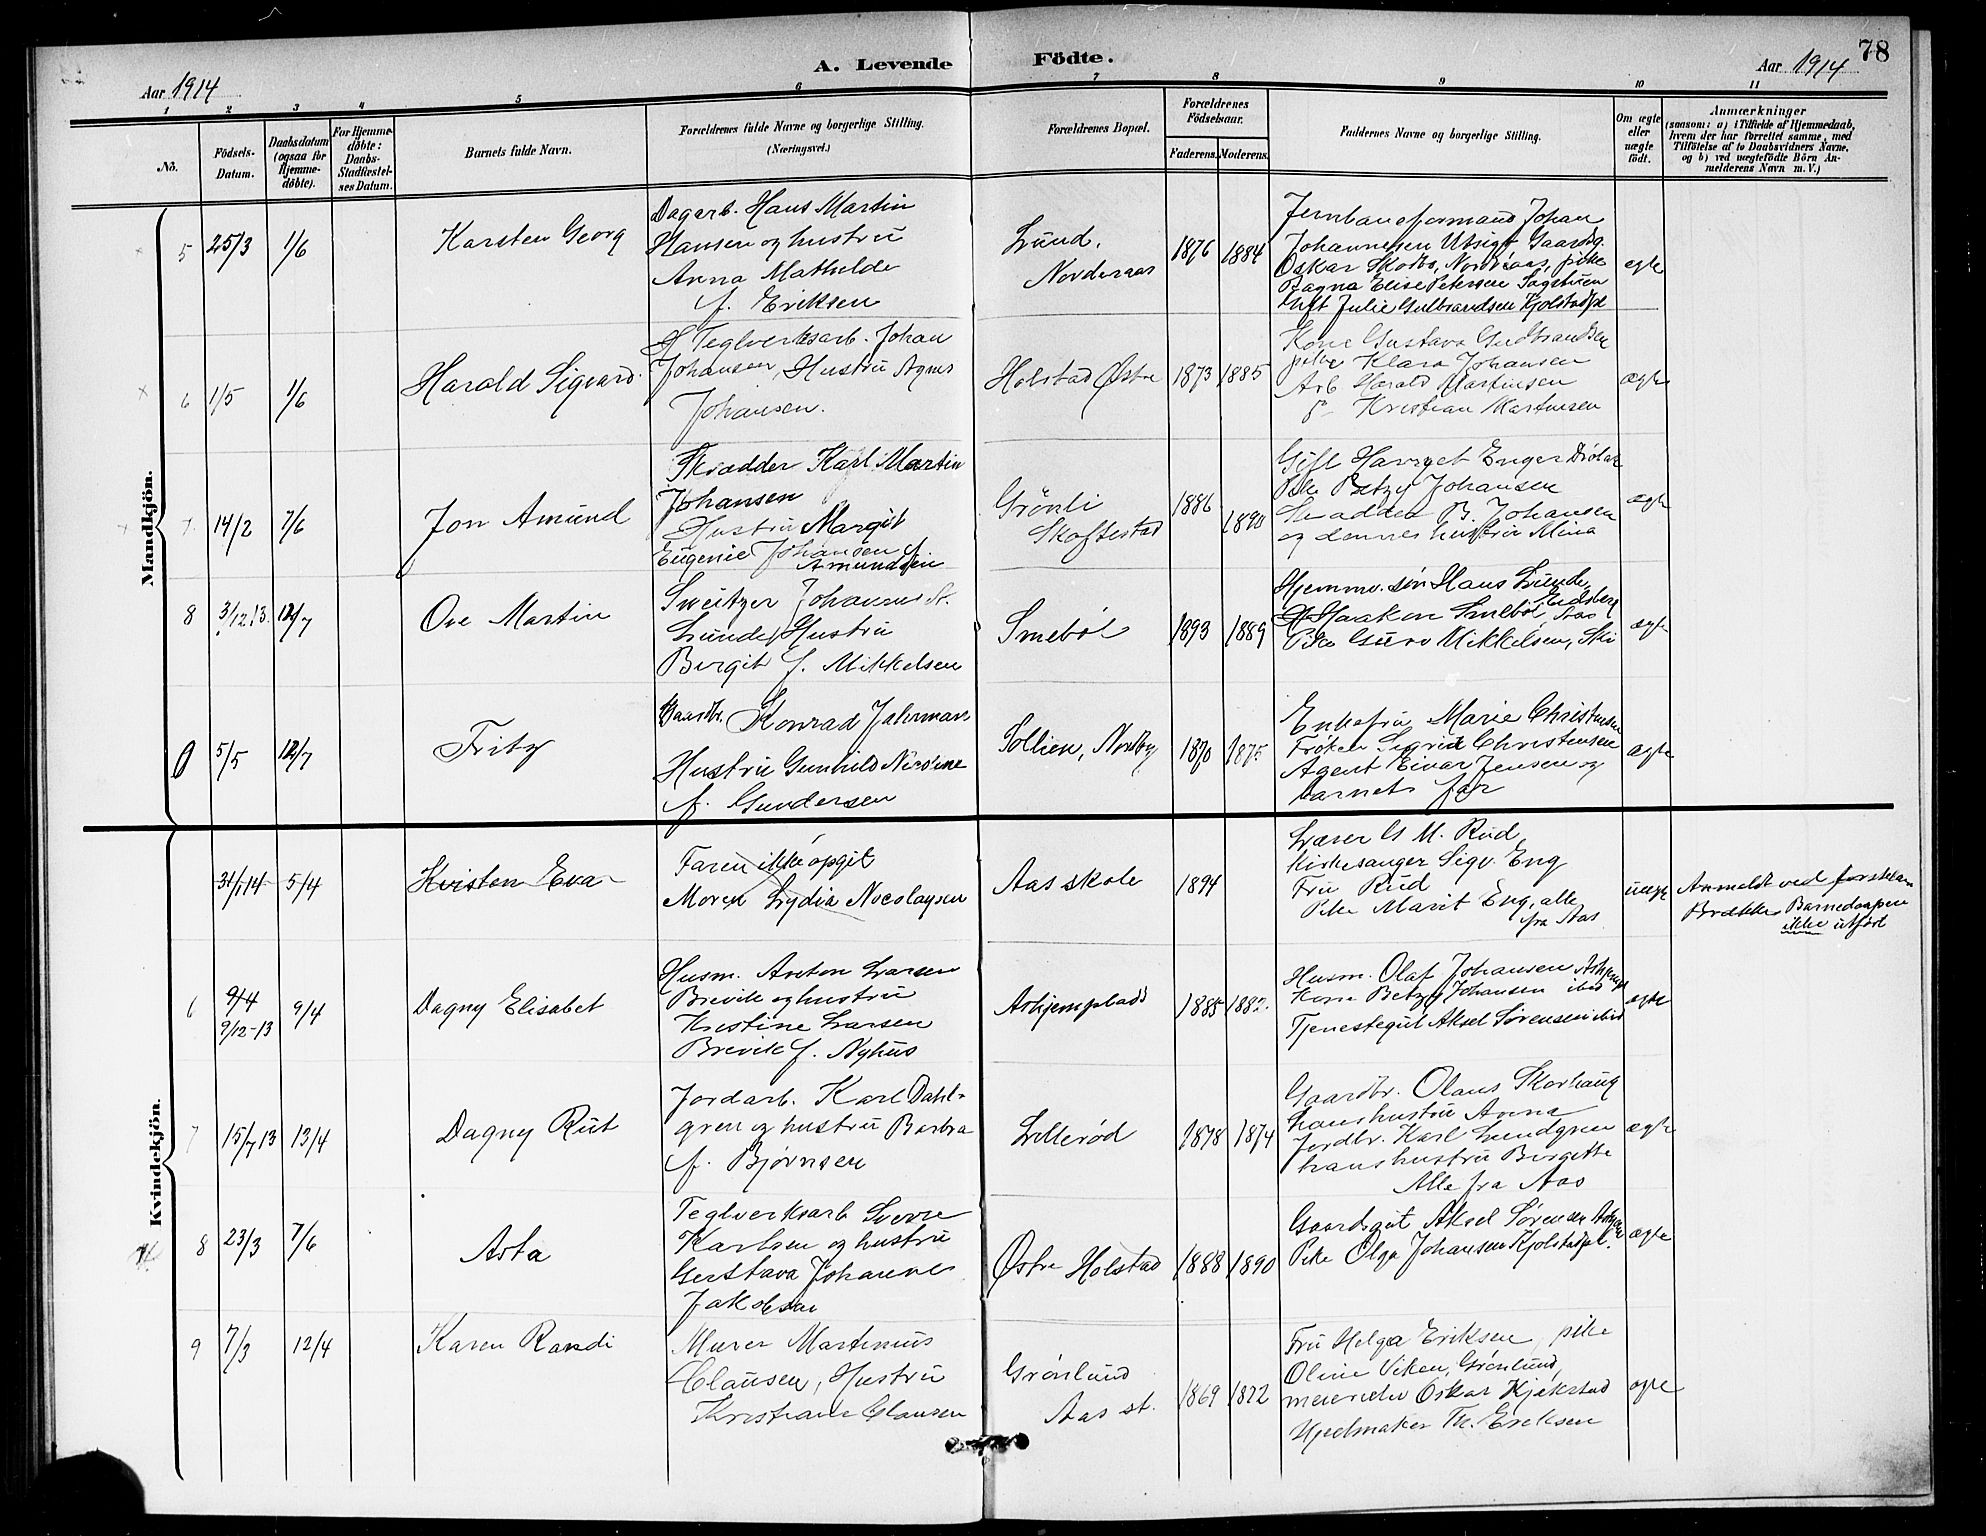 78
A. Levende Födte.
Aar 1914
Aar 1914
1 2 3 4 5 6 7 8 9 10 11
No.
Födsels-Datum.
Daabsdatum (ogsaa for Hjemmedöbte).
For Hjemmedöbte: Daabs-Stadfæstelses Datum.
Barnets fulde Navn.
Forældrenes fulde Navne og borgerlige Stilling.
(Næringsvei.)
Forældrenes Bopæl.
Forældrenes Födselsaar.
Faderens. Moderens.
Faddernes Navne og borgerlige Stilling.
Om ægte eller uægte födt.
Anmærkninger
(saasom: a) i Tilfælde af Hjemmedaab,
hvem der har forrettet samme, med
Tilföielse af to Daabsvidners Navne.
og b) ved uægtefödte Börn Anmelderens Navn m. V.)
Mandkjön.
5 25/3 1/6 Karsten Georg
Dagarb. Hans Martin
Hansen og hustru
Anna Mathilde
f. Eriksen
Lund,
Norderaas
1876 1884
Jernbaneformand Johan
Johannesen Utsigt Gaardbg.
Oskar Skodbo, Norderaas, pike
Ragna Elise Petersen Sagstuen
Ugft Julie Gulbrandsen Kjolstadpl
ægte
6 1/5 1/6 Harald Sigvard
Teglverksarb. Johan
Johansen, Hustru Agnes
Johansen.
Holstad Østre
1873 1885
Kone Gustava Gudbrandsen
pike Klara Johansen
Arb Harald Martinsen
Kristian Martinsen
ægte
7 14/2 7/6 Jon Amund
Skrædder Karl Martin
Johansen
Hustru Margit
Eugenie Johansen f.
Amundsen
Grönli
Skoftestad
1886 1890
Gift Enger Dröbak
Pike Betzy Johansen
B. Johansen
og dennes hustru Mina
ægte
8 3/12.13. 12/7 Ove Martin
Sweitzer Johannes
Lunde, Hustru
Birgit f. Mikkelsen
Smebøl
1893 1889
Hjemmv. søn Hans Lunde,
Eidsberg
Haakon Smebøl Aas
Pike Guro Mikkelsen, Ski
ægte
5/5 12/7 Fritz
Gaardbr. Konrad Jahrmann
Hustru Gunhild
f. Gundersen
Sollien, Nordby
1870 1875
Enkefru Marie Christensen
Frøken Sigrid Christensen
Agent Einar Jensen og
barnets far
ægte
Kvindekjön.
31/1 14 5/4 Kristen Eva
Faren ikke opgit
Moren Lydia Nicolaysen
Aas skole
1894
Lærer M. Rud,
Kirkesanger Sigv. Eng
Fru Rud
Pike Marit Eng, alle
fra Aas
uægte
Anmeldt ved forstkan
Brække. Barnedaapen
ikke utført
6 9/4
9/12-13 9/4 Dagny Elisabet
Husm. Anton Larsen
Brevik og hustru
Kristine Larsen
Brevik f. Nyhus
Askjemplads
1885 1882
Husm. Olaf Johansen Askjempl
Kone Betzy Johansen ibid
Tjenestegut Aksel Sørensen ibid
ægte
7 15/7 13 13/4 Dagny Rut
Jordarb. Karl Dahl-
gren og hustru Barbra
f. Bjørnsen
Lillerød
1878 1874
Gaardbr. Olaus Skorhaug
hans hustru Anna
Jordbr. Karl Lundgren
hans hustru Birgitte
Alle fra Aas
ægte
8 23/3 7/6 Asta
Teglverksarb Sverre
Karlsen og hustru
Gustava Johanne
Jakobsen
Østre Holstad
1888 1890
Gaardsgut Aksel Sørensen
Pike Olga Johansen Kjolstadpl.
ægte
9 7/3 12/4 Karen Randi
Murer Martinius
Clausen, Hustru
Kristiane Clausen
Grønlund
Aas st.
1869 1872
Fru Helga Eriksen, pike
Oline Viken, Grønlund,
Oskar Kjekstad
Hjulmaker Th. Eriksen
ægte